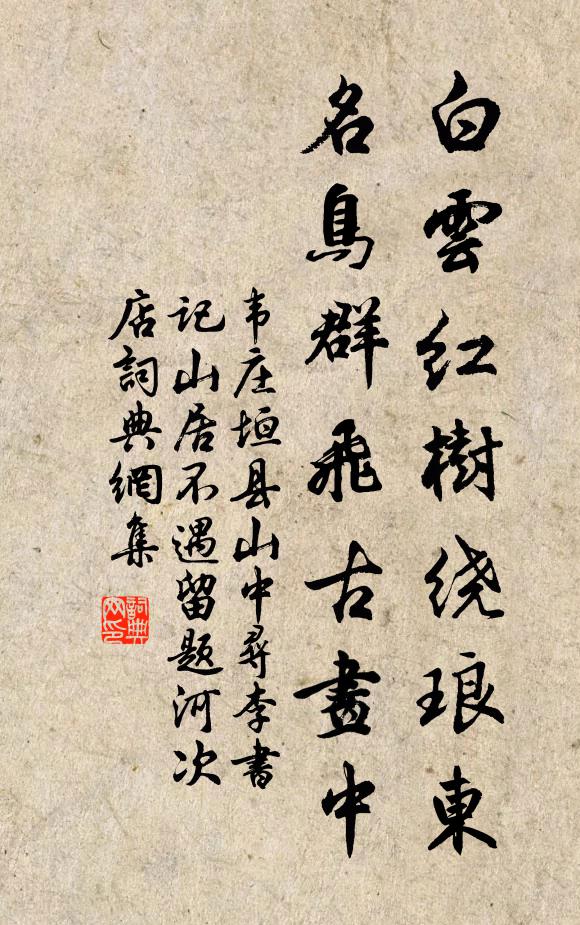 白雲紅樹绕琅東
名鳥群飛古畫中
韦庄垣县山中尋李書
记山居不遇留题河次
店詞典網集
詞典网印